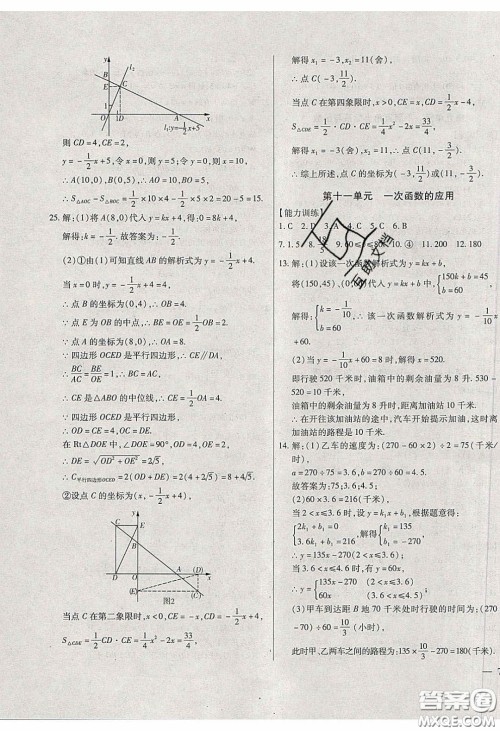 y
l₂
B
E
C
1
O
1D
A
x
l₁:y=-1/2x+5
则 CD=4,CE=2,
y=-1/2x+5,令 x=0,y=5,令 y=0,x=10,
∴A(10,0),B(0,5),∴AO=10,BO=5.
∴S△AOC-S△BOC=1/2×10×4-1/2×5×2=15.
25. 解:(1)将 A(8,0)代入 y=kx+4,得:0=8k+4,
解得:k=-1/2. 故答案为:-1/2.
(2)①由(1)可知直线 AB 的解析式为 y=-1/2x+4.
当 x=0 时,y=-1/2x+4=4,
∴点 B 的坐标为(0,4),∴OB=4.
∵点 E 为 OB 的中点,∴BE=OE=1/2OB=2.
∵点 A 的坐标为(8,0),∴OA=8.
∵四边形 OCED 是平行四边形,∴CE∥DA,
∴BC/AC=BE/OE=1,∴BC=AC,
∴CE 是△ABO 的中位线,∴CE=1/2OA=4.
∵四边形 OCED 是平行四边形,
∴OD=CE=4,OC=DE.
在 Rt△DOE 中,∠DOE=90°,OD=4,OE=2,
∴DE=√(OD²+OE²)=2√5,
∴C平行四边形OCED=2(OD+DE)=2(4+2√5)=8+4√5.
②设点 C 的坐标为(x,-1/2x+4),
y
C
E
B
D
O
A
(D)
x
(E)
(C)
图2
当点 C 在第二象限时,x<0,CE=-x,CD=-1/2x+4,
S△CDE=1/2CD·CE=-1/4x²+2x=33/4,
解得 x₁=-3,x₂=11(舍),
∴点 C(-3,11/2).
当点 C 在第四象限时,x>0,CE=x,CD=1/2x-4,
S△CDE=1/2CD·CE=1/4x²-2x=33/4,
解得 x₁=-3(舍),x₂=11,
∴点 C(11,-3/2).
∴综上所述,点 C(-3,11/2)或(11,-3/2).
第十一单元 一次函数的应用
[能力训练]
1. C 2. B 3. C 4. C 5. C 6. B
11. 200 12. 180
13. 解:(1)设该一次函数解析式为 y=kx+b,
将(150,45),(0,60)代入 y=kx+b 中,{150k+b=45 b=60
解得:{k=-1/10 b=60,∴该一次函数解析式为 y=-1/10x+60.
(2)当 y=-1/10x+60=8 时,解得 x=520.
即行驶 520 千米时,油箱中的剩余油量为 8 升. 530-
520=10 千米,
油箱中的剩余油量为 8 升时,距离加油站 10 千米.
∴在开往该加油站的途中,汽车开始提示加油,这时离加油站的路程是 10 千米.
14. 解:(1)乙车的速度为:(270-60×2)÷2=75(千米/时),
a=270÷75=3.6,b=270÷60=4.5.
故答案为:75;3.6;4.5.
(2)60×3.6=216(千米),
当 2<x≤3.6 时,设 y=k₁x+b₁,根据题意得:
{2k₁+b₁=0 3.6k₁+b₁=216,解得{k₁=135 b₁=-270
∴y=135x-270(2<x≤3.6);
当 3.6<x≤4.5 时,设 y=60x,
∴y={135x-270(2<x≤3.6) 60x(3.6<x≤4.5)
(3)甲车到达距 B 地 70 千米处时行驶的时间为:(270
-70)÷60=10/3(小时),
此时甲、乙两车之间的路程为:135×10/3-270=180(千米)
互助文档
答案圈
MXQE.COM